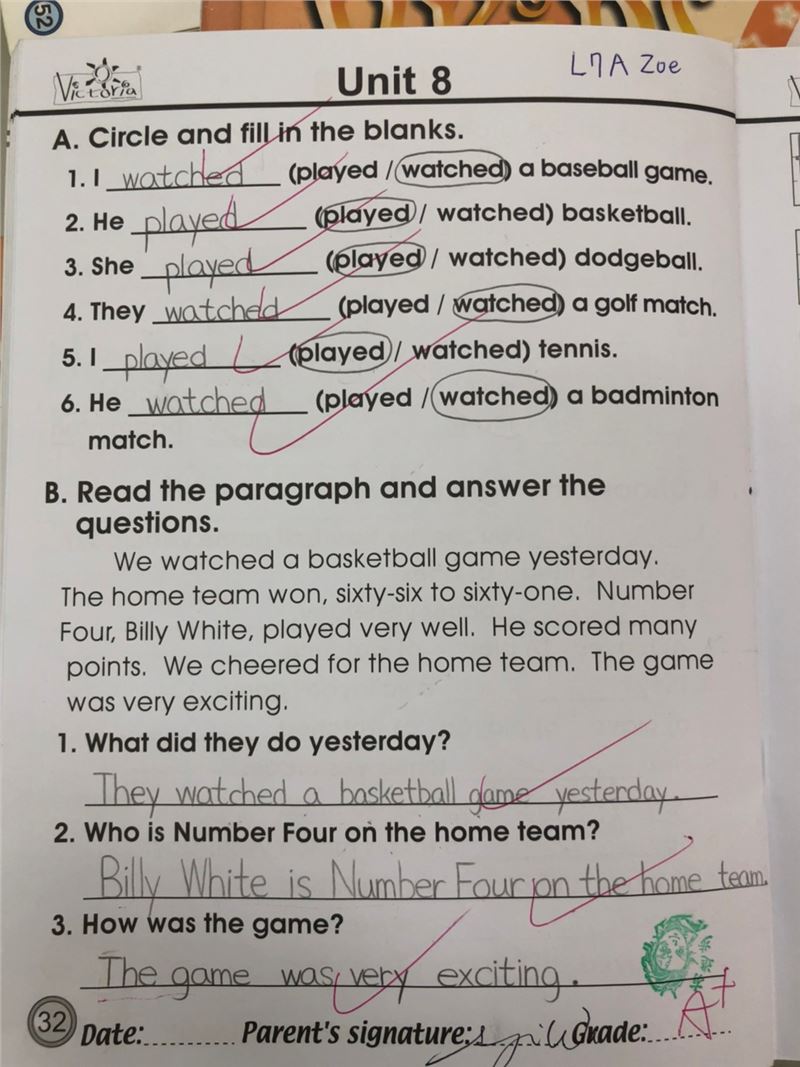 52
Victoria
Unit 8
L7A Zoe
A. Circle and fill in the blanks.
1. I watched (played / watched) a baseball game.
2. He played (played / watched) basketball.
3. She played (played / watched) dodgeball.
4. They watched (played / watched) a golf match.
5. I played (played / watched) tennis.
6. He watched (played / watched) a badminton
match.
B. Read the paragraph and answer the
questions.
We watched a basketball game yesterday.
The home team won, sixty-six to sixty-one. Number
Four, Billy White, played very well. He scored many
points. We cheered for the home team. The game
was very exciting.
1. What did they do yesterday?
They watched a basketball game yesterday.
2. Who is Number Four on the home team?
Billy White is Number Four on the home team.
3. How was the game?
The game was very exciting.
32 Date:.......... Parent's signature: Grade: A+